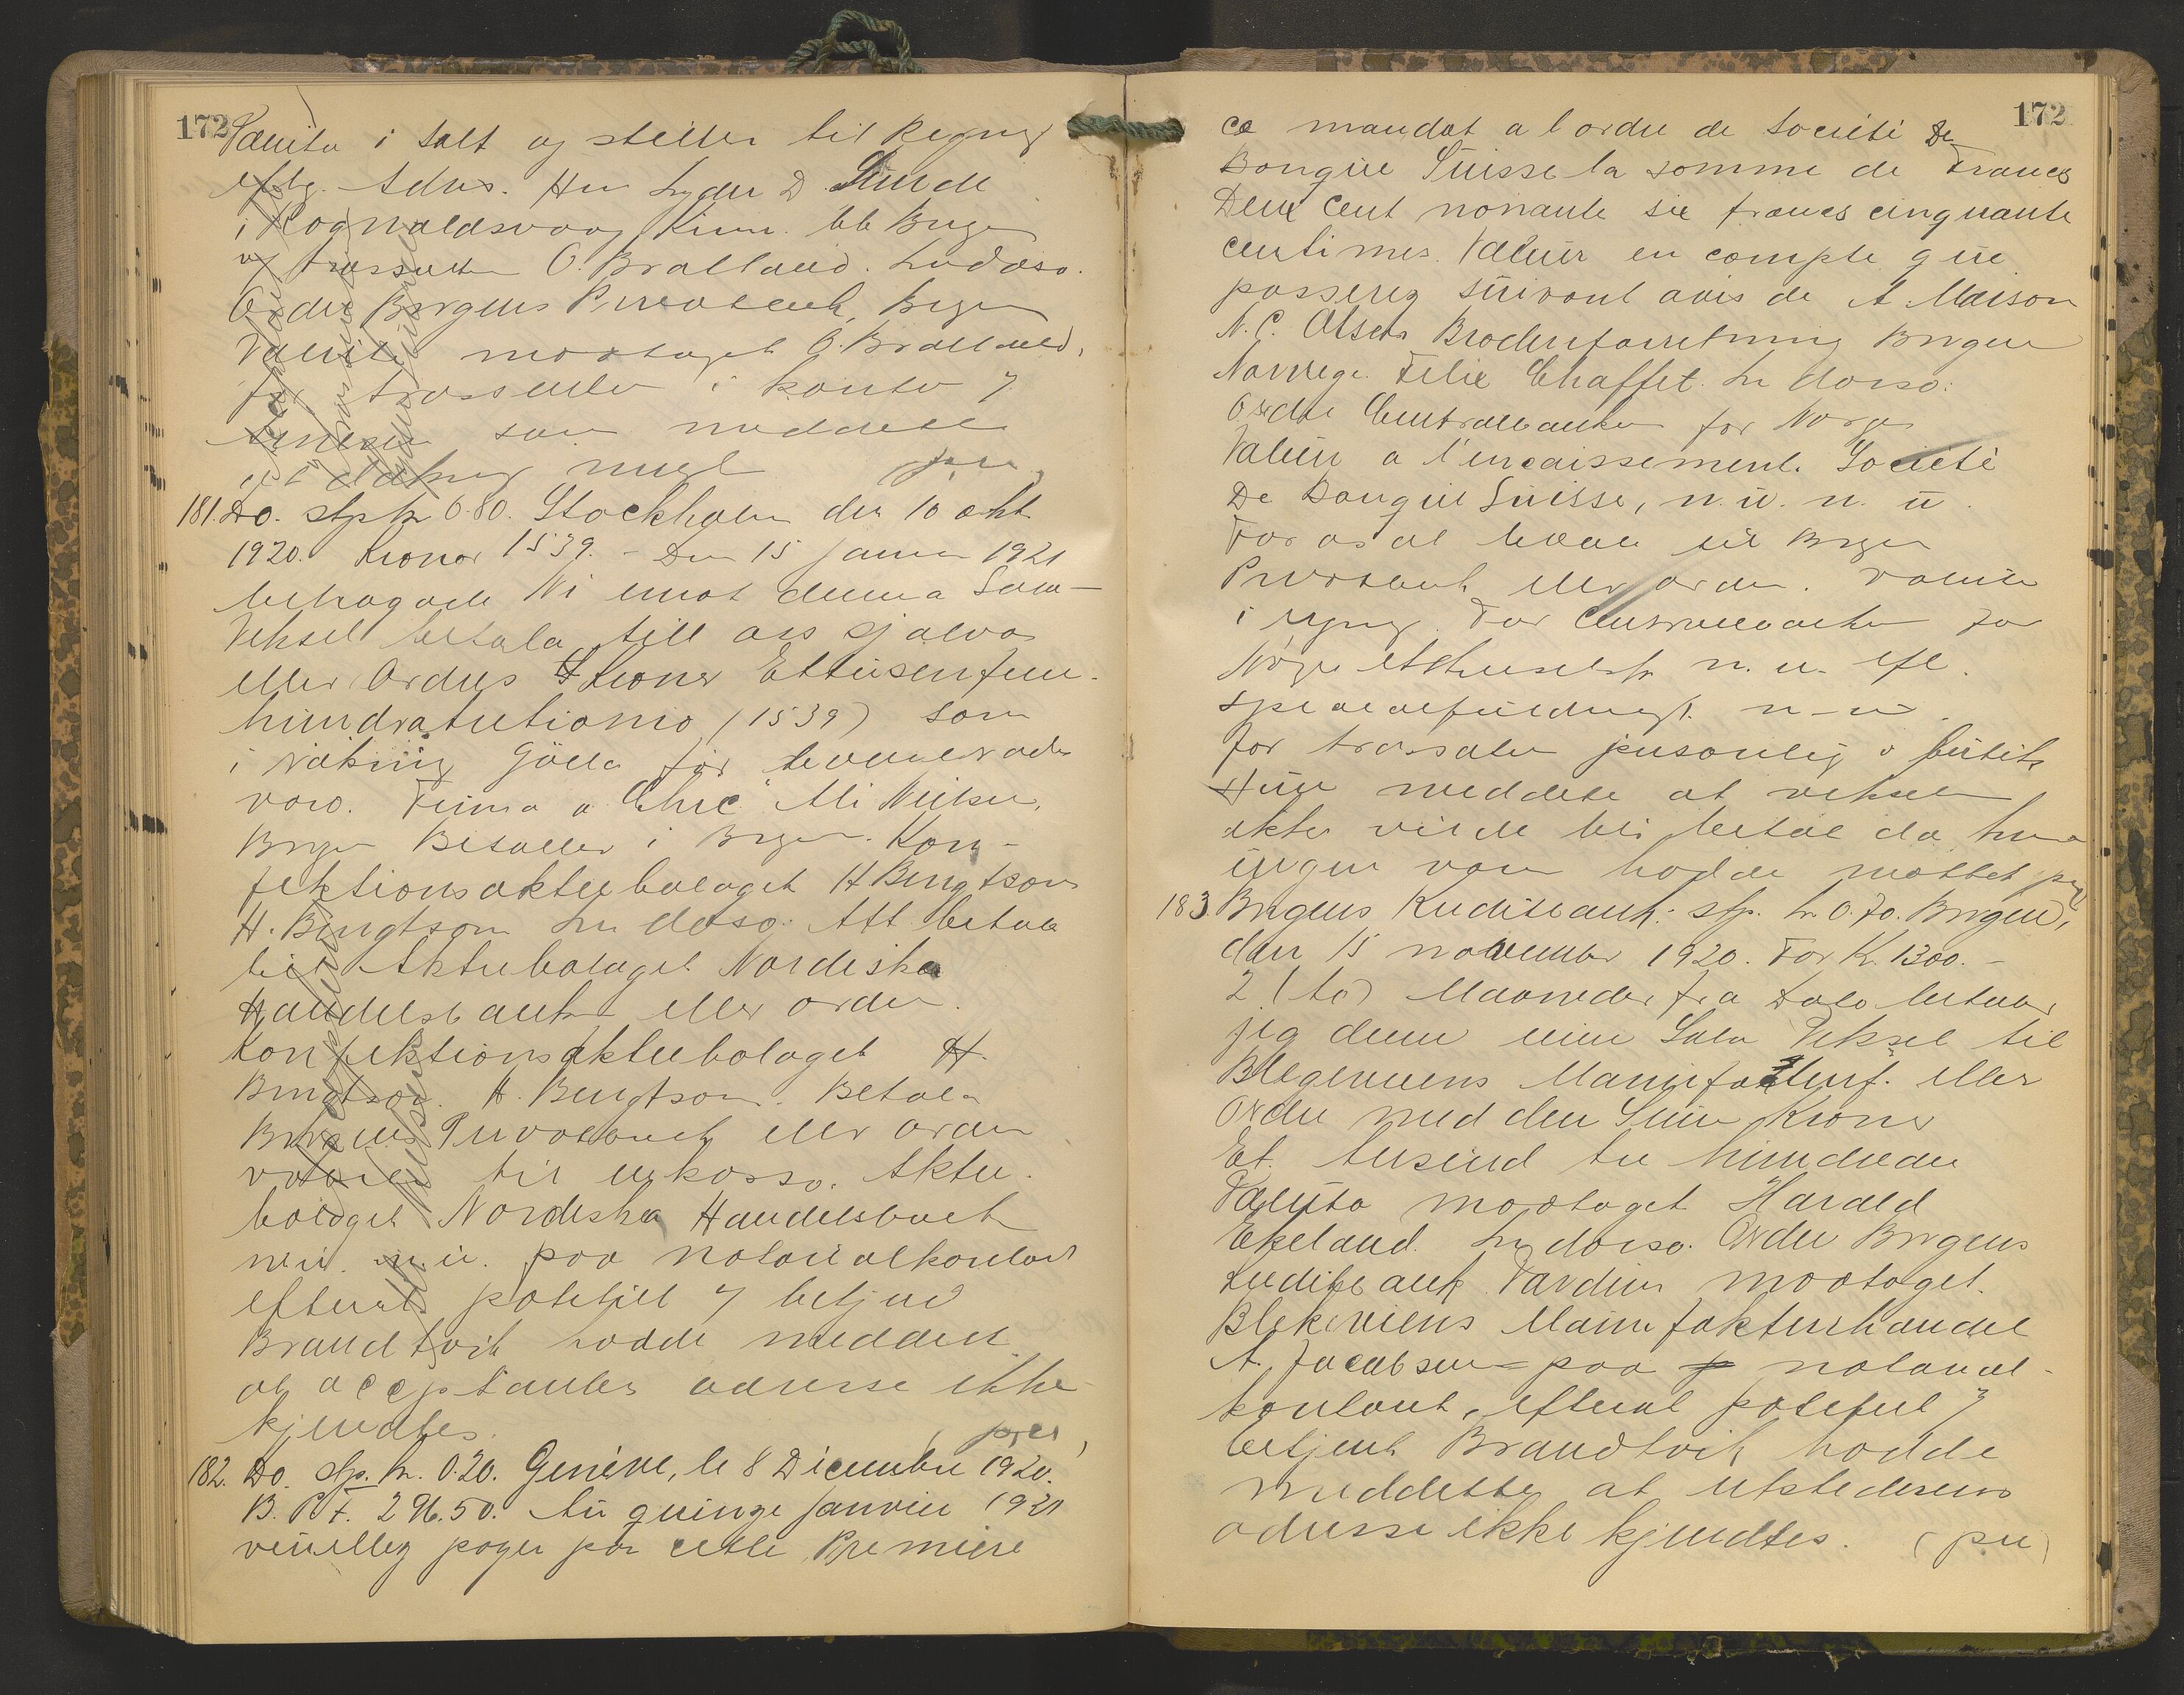 172
Valuta i Salt og stiller til Regning
eflg. Advis. Hr Lyder D. Sunde
i Rognvaldsvaag Kinn. bb Bergen
og trassenten O. Bratland. In dosso.
Ordre Bergens Privatbank, Bergen
Valuta mottaget O. Bratland,
for trassenten i konto 7
som meddelte
181. Do. stp kr 0.80. Stockholm den 10 okt.
1920. Kronor 1539. - Den 15 Januari 1921
behagade Ni emot denna Sola-
Veksel betala till oss sjalva
eller Ordres Kronor Ettusenfem-
hundratrettionio (1539) som
i räkning Gälla för
varo. Firma a "Chic" Mi Nilsen,
Bergen Betalles i Bergen. Kon-
fektionsaktiebolaget H Bengtson
H. Bengtson In dosso: Att betala
till Aktiebolaget Nordiska
Handelsbanken eller order.
Konfektionsaktiebolaget H.
Bengtson. H. Bengtson. Betala
Bergens Privatbank eller order
valuta til inkasso. Aktie-
bolaget Nordiska Handelsbanken
n. u. n. u. paa notarialkontoret
efterat politifuld 7 betjent
Brandtvik hadde meddelt
at acceptantens adresse ikke
kjendtes. pres
182. Do. stp. kr. 0.20. Genève, le 8 Décembre 1920.
B. P. F. 296.50. Au quinze Janvier 1921
veuillez payer par cette Première
172
ce mandat a l'ordre de Société De
Banque Suisse la somme de Francs
Deux Cent nonante six francs cinquante
centimes. Valeur en compte que
passerez suivant avis de A Maison
N. C. Olsens Broderiforretning Bergen
Norvege. Felix Chaffet. In dosso:
Ordre Centralbanken for Norge
Valeur a l'encaissement. Societé
De Banque Suisse, n. u. n. u.
For os at betale til Bergens
Privatbank eller ordre. valuta
i regning. For Centralbanken for
Norge Aktieselsk n. u. efl.
specialfuldmagt. n-u.
for trassaten personlig i butik
Hun meddelte at vekselen
ikke vilde bli betalt da hun
ingen varer hadde mottet pres
183 Bergens Kreditbank: stp. kr. 0.70. Bergen,
den 15 november 1920. For Kr. 1300. -
2 (to) Maaneder fra Dato betaler
jeg denne min Sola Veksel til
Blegeveiens Manufakturf. eller
Ordre med den Sum Kroner
Et tusind tre hundrede
Valuta mottaget Harald
Ekeland. In dosso. Ordre Bergens
Kreditbank Værdien mottaget.
Blekeveiens Manufakturhandel
A. Jacobsen - paa notarial-
kontoret, efterat politiful 7
betjent Brandtvik hadde
meddelt at utstederens
adresse ikke kjendtes. (pres)